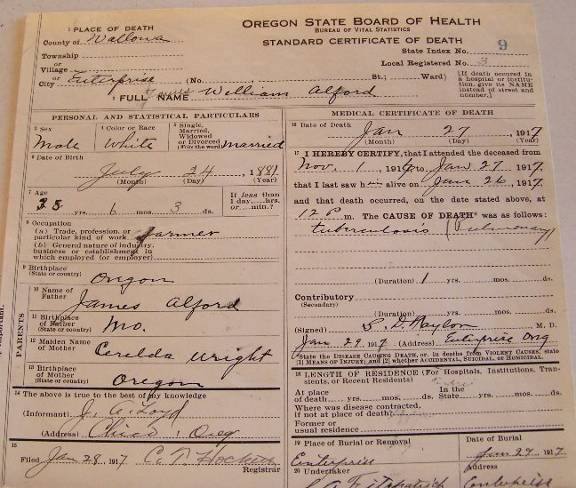 OREGON STATE BOARD OF HEALTH
BUREAU OF VITAL STATISTICS
STANDARD CERTIFICATE OF DEATH
1 PLACE OF DEATH
County of Wallowa
State Index No. 9
Township
Local Registered No. 3
or
Village
or
City Enterprise (No. St.; Ward)
[If death occurred in a hospital or institution, give its NAME instead of street and number.]
2 FULL NAME James William Alford
PERSONAL AND STATISTICAL PARTICULARS
3 Sex
Male
4 Color or Race
White
5 Single, Married, Widowed or Divorced
(Write the word) Married
6 Date of Birth
July 24, 1881
(Month) (Day) (Year)
7 Age
35 yrs. 6 mos. 3 ds.
If less than 1 day....hrs. or....min.?
8 Occupation
(a) Trade, profession, or particular kind of work Farmer
(b) General nature of industry, business or establishment in which employed (or employer)
9 Birthplace
(State or country)
Oregon
PARENTS
10 Name of Father
James Alford
11 Birthplace of Father
(State or country)
Mo.
12 Maiden Name of Mother
Wright
13 Birthplace of Mother
(State or country)
Oregon
14 The above is true to the best of my knowledge
(Informant)
(Address)
15
Filed Jan 28, 1917
Registrar
MEDICAL CERTIFICATE OF DEATH
16 Date of Death
Jan 27, 1917
(Month) (Day) (Year)
17 I HEREBY CERTIFY, that I attended the deceased from
Nov. 1 1916 to Jan 27 1917,
that I last saw him alive on Jan 26 1917,
and that death occurred, on the date stated above, at
12 P m. The CAUSE OF DEATH* was as follows:
Tuberculosis (Pulmonary)
(Duration) 1 yrs. mos. ds.
Contributory
(Secondary)
(Duration) yrs. mos. ds.
(Signed) M. D.
Jan 29 1917 (Address) Enterprise Org
*State the DISEASE CAUSING DEATH, or, in deaths from VIOLENT CAUSES, state (1) MEANS OF INJURY; and (2) whether ACCIDENTAL, SUICIDAL, or HOMICIDAL.
18 LENGTH OF RESIDENCE (For Hospitals, Institutions, Transients, or Recent Residents)
At place of death yrs. mos. ds. In the State yrs. mos. ds.
Where was disease contracted, if not at place of death?
Former or usual residence
19 Place of Burial or Removal
Enterprise
Date of Burial
Jan 29 1917
20 Undertaker
Fitzpatrick
Address
Enterprise